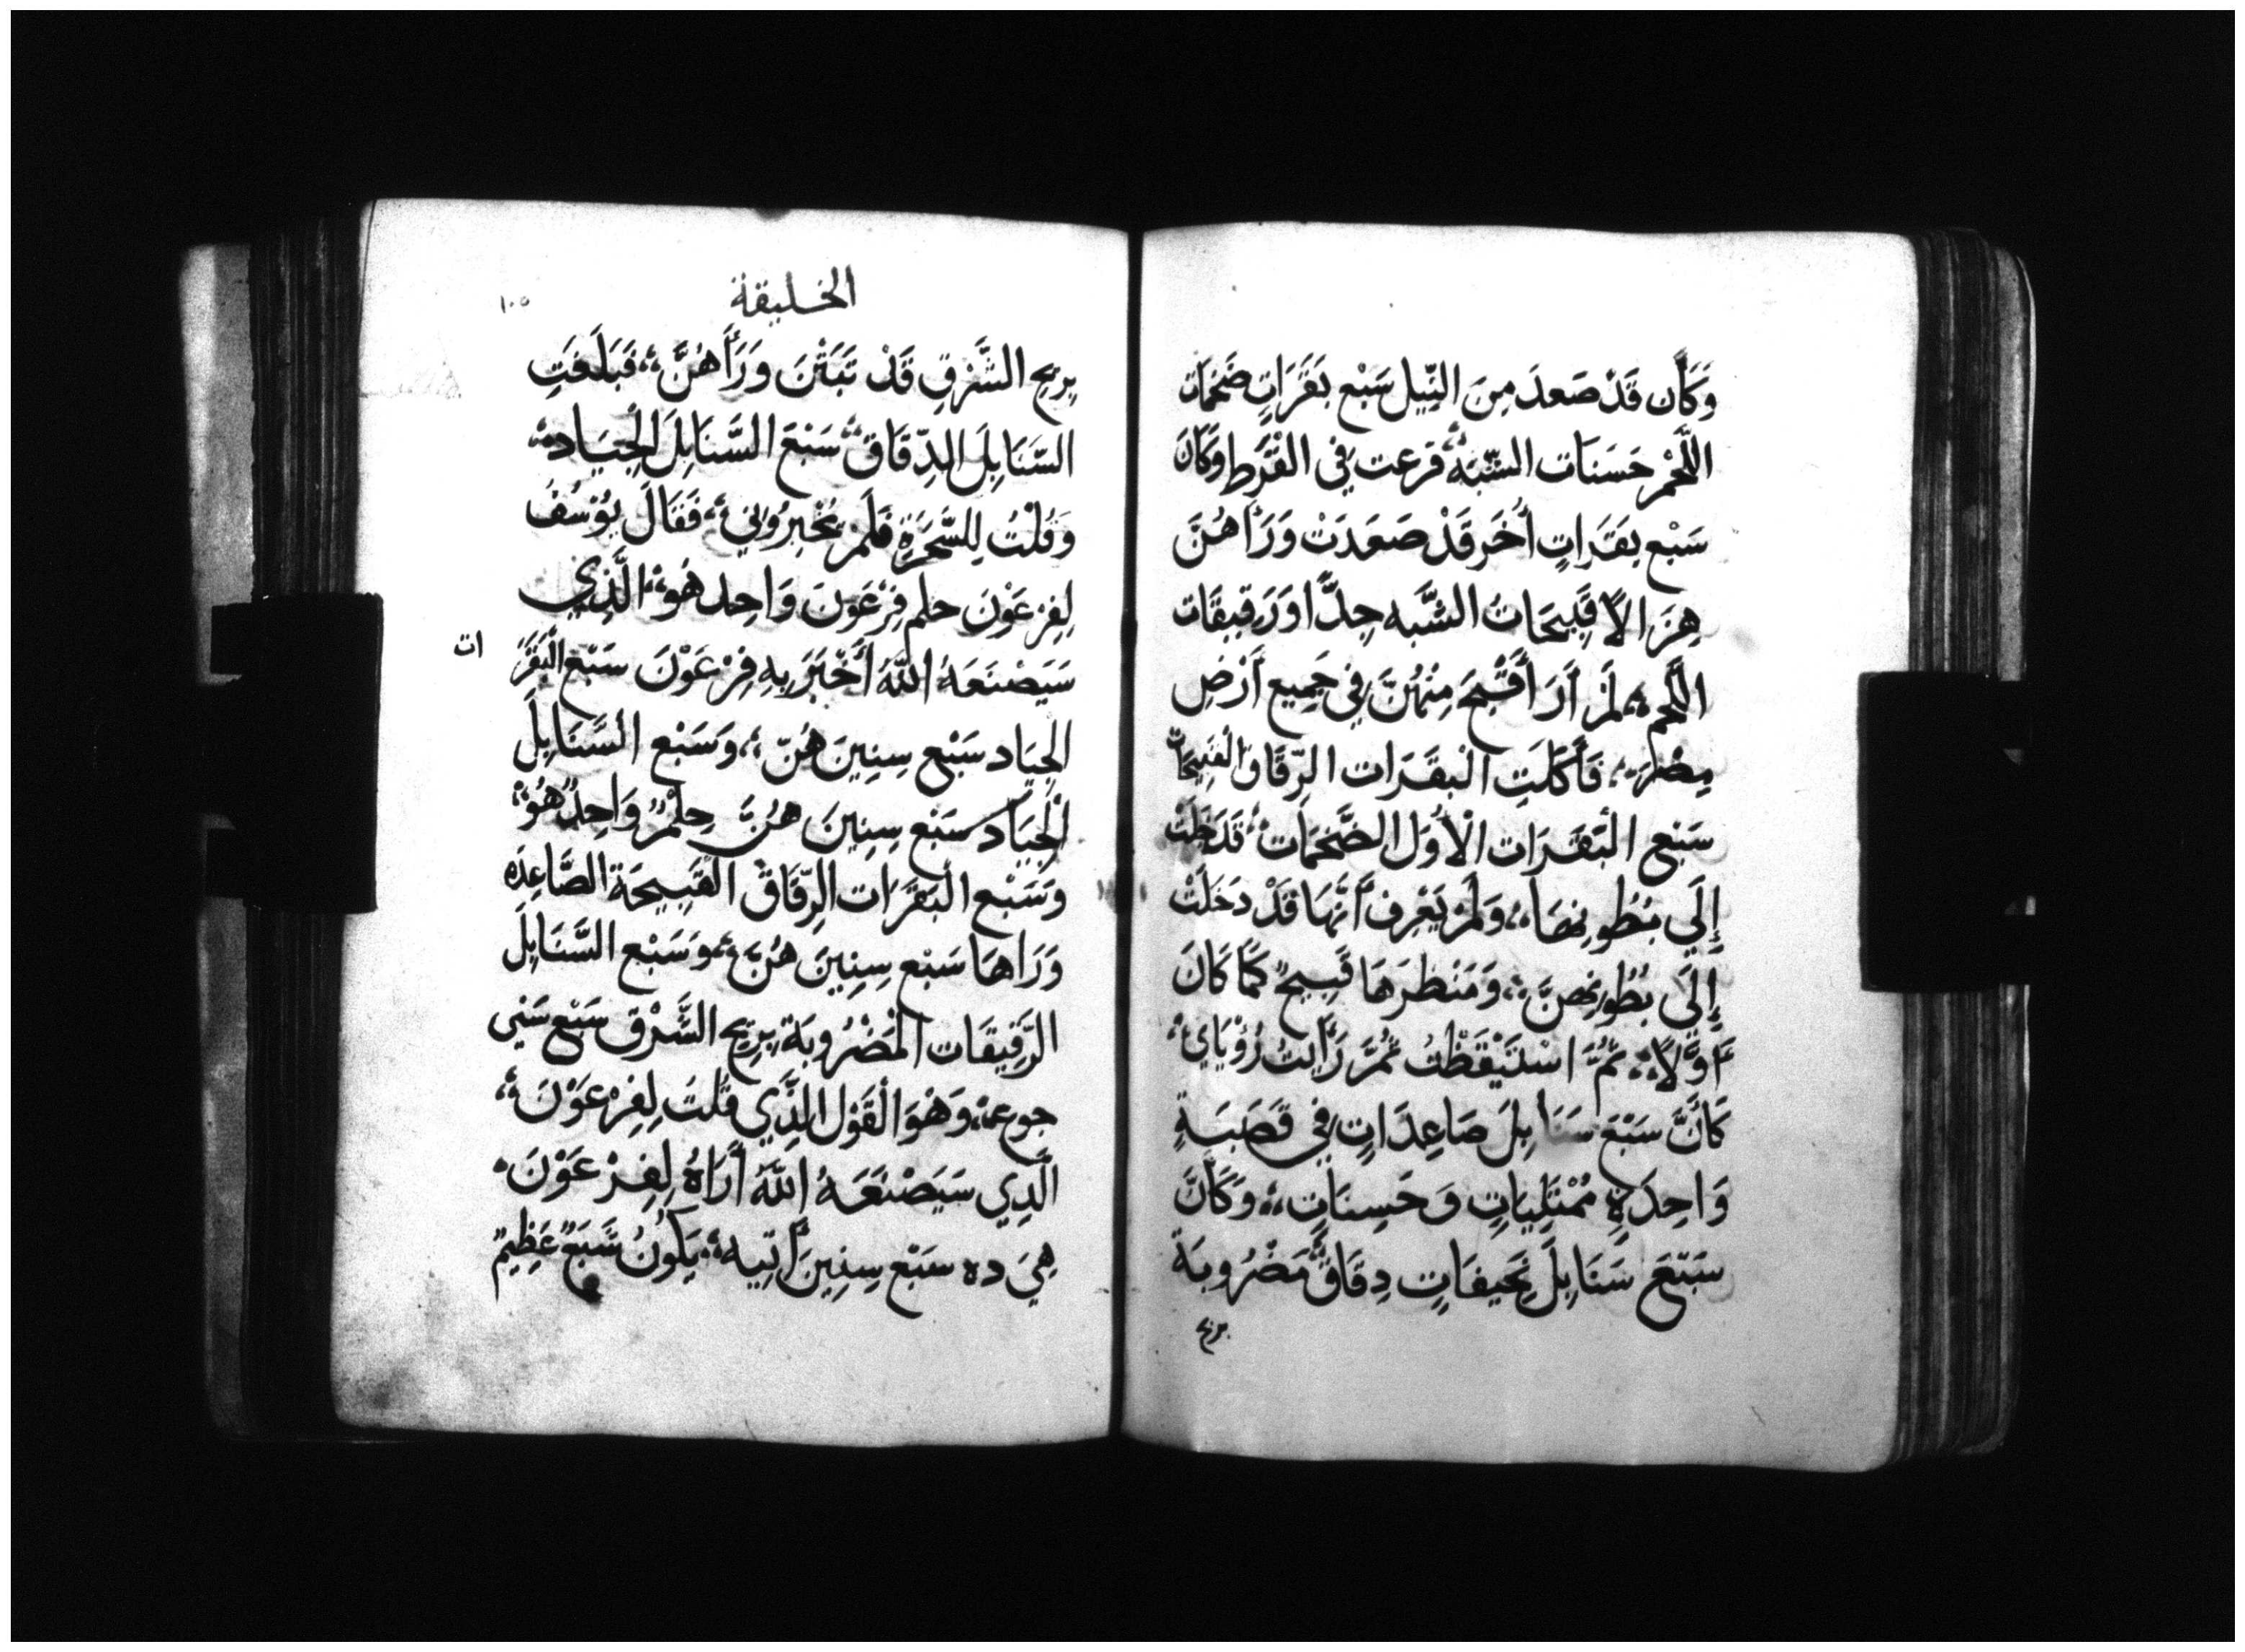 وَكَأَن قَدْ صَعدَ مِنَ النِّيل سَبْع بَقَرَاتٍ ضَخمَات
اللَّحْم حَسَنَات الشَّبَه ؛ فرعت فِي القُرط وَكَانَ
سَبْع بقَرَاتٍ أُخَر قَدْ صَعَدَتْ وَرَآهُنَّ
هِزَالًا قَبِيحَاتُ الشَّبَه جِدًّا وَرَقِيقَات
اللَّحم ؛ لَمْ أَرَ أَقْبَحَ مِنْهُنَّ فِي جَمِيع أَرْضِ
مِصْرَ ؛ فَأَكَلَتِ البقَرَات الرِّقَاق القَبِيحَات
سَبْع البَقَرَات الْأُوَل الضَّخمَات ؛ قَدَخَلَتْ
إِلَي بُطُونِهَا ؛ وَلَمْ يَعْرِف أَنَّهَا قَدْ دَخَلَتْ
إِلَى بُطُونِهِنَّ ؛ وَمَنْظرَهَا قَبِيحٌ كَمَا كَانَ
أَوَّلًا ؛ ثُمَّ اسْتَيْقَظْتُ ثُمَّ رَأَيتُ رُؤْيَاي ؛
كَأَنَّ سَبْعَ سَنَابِلَ صَاعِدَاتٍ فِي قَصَبَةٍ
وَاحِدَةٍ مُمْتَلِيَاتٍ وَحَسِنَاتٍ ؛ وَكَأَنَّ
سَبْعَ سَنَابِلَ نَحَيفَاتٍ دِقَاقٌ مَضْرُوبَة
بريح
الخليقة
١٠٥
بِرِيحِ الشَّرْقِ قَدْ تَبَتْنَ وَرَأَهُنَّ ؛ فَبَلَعَتِ
السَّنَابِلَ الدِّقَاق ؛ سَبْعَ السَّنَابِلَ الجِيَاد ؛
وَقُلْتُ لِلسَّحَرَةِ فَلَمْ يُخْبِرُونِي ؛ فَقَالَ يُوْسُفُ
لِفِرْعَوْنَ حلم فِرْعَوْنَ وَاحِد هُوَ ؛ الَّذِي
سَيَصْنَعَهُ اللَّهُ أَخْبَرَ بِهِ فِرْعَوْنَ سَبْع البَقَرَ
ات
الجِيَاد سَبْع سِنِينَ هُنّ ؛ وَسَبْع السَّنَابِلَ
الْجِيَاد سَبْع سِنِينَ هُنَّ حِلْمٌ وَاحِدٌ هُوَ ؛
وَسَبْع البَقَرَات الرِّقَاق القَبِيحَة الصَّاعِدَه
وَرَاهَا سَبْع سِنِينَ هُنَّ ؛ وَسَبْع السَّنَابِلَ
الرَّقِيقَات الْمَضْرُوبَة بِرِيحِ الشَّرْق سَبْع سَنِي
جوع ؛ وَهْوَ القَوْل الَّذِي قُلتَ لِفِرْعَوْنَ ؛
الَّذِي سَيَصْنَعَهُ اللَّهُ أَرَاهُ لِفِرْعَوْنَ ،
هِيَ ده سَبْع سِنِينَ أَتِيه ؛ يَكُونُ شَبَعٌ عَظِيمٌ